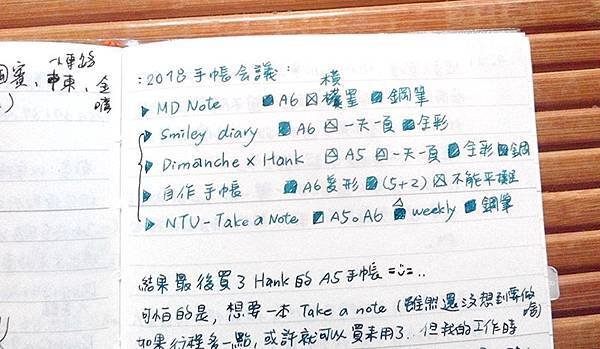 :2018 手帳会議:
▶ MD Note ■ A6 ☒ 橫置 ■ 鋼筆
▶ Smiley diary ■ A6 ☒ 一天一頁 ■ 全彩
▶ Dimanche x Hank ☒ A5 ☒ 一天一頁 ■ 全彩 ■ 鋼
▶ 自作手帳 ■ A6変形 ■ (5+2) ☒ 不能平攤
▶ NTU-Take a Note ■ A5。A6 ■ weekly ■ 鋼筆
結果最後買了 Hank 的 A5 手帳
可怕的是,想要一本 Take a note (雖然還沒想到要做
如果行程多一點,或許就可以買來用了..但我的工作時